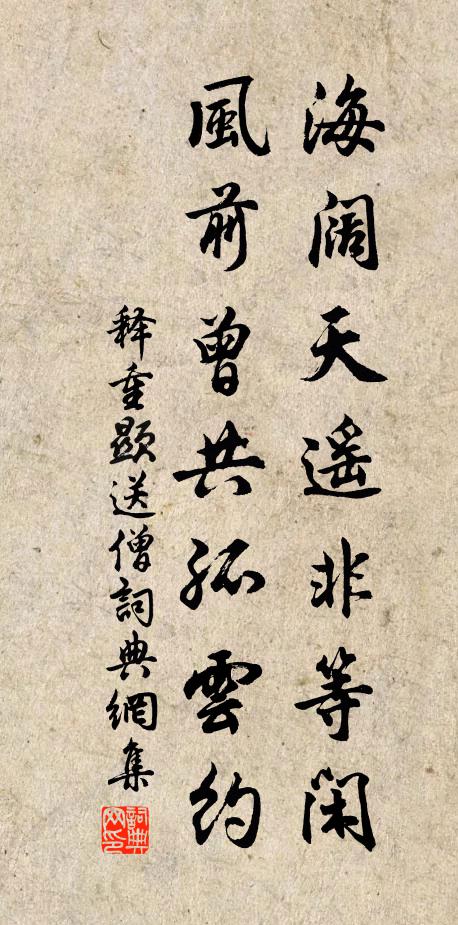 海闊天遥非等閑
風前曾共孤雲約
释重顯送僧詞典網集
詞典網印